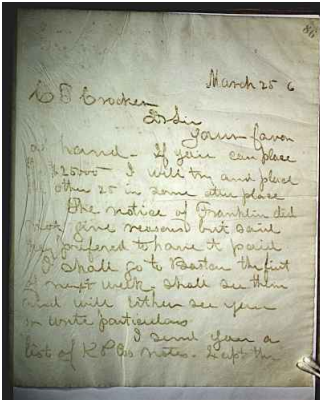 86
March 25 6
C S Crocker
Dr Sir
Your favor
at hand. If you can place
the $25000 I will try and place
the other 25 in some other place
The notice of Franklin did
not give reasons but said
they prefered to have it paid
I shall go to Boston the first
of next week. shall see them
and will either see you
or write particulars
I send you a
list of Notes. Kept the